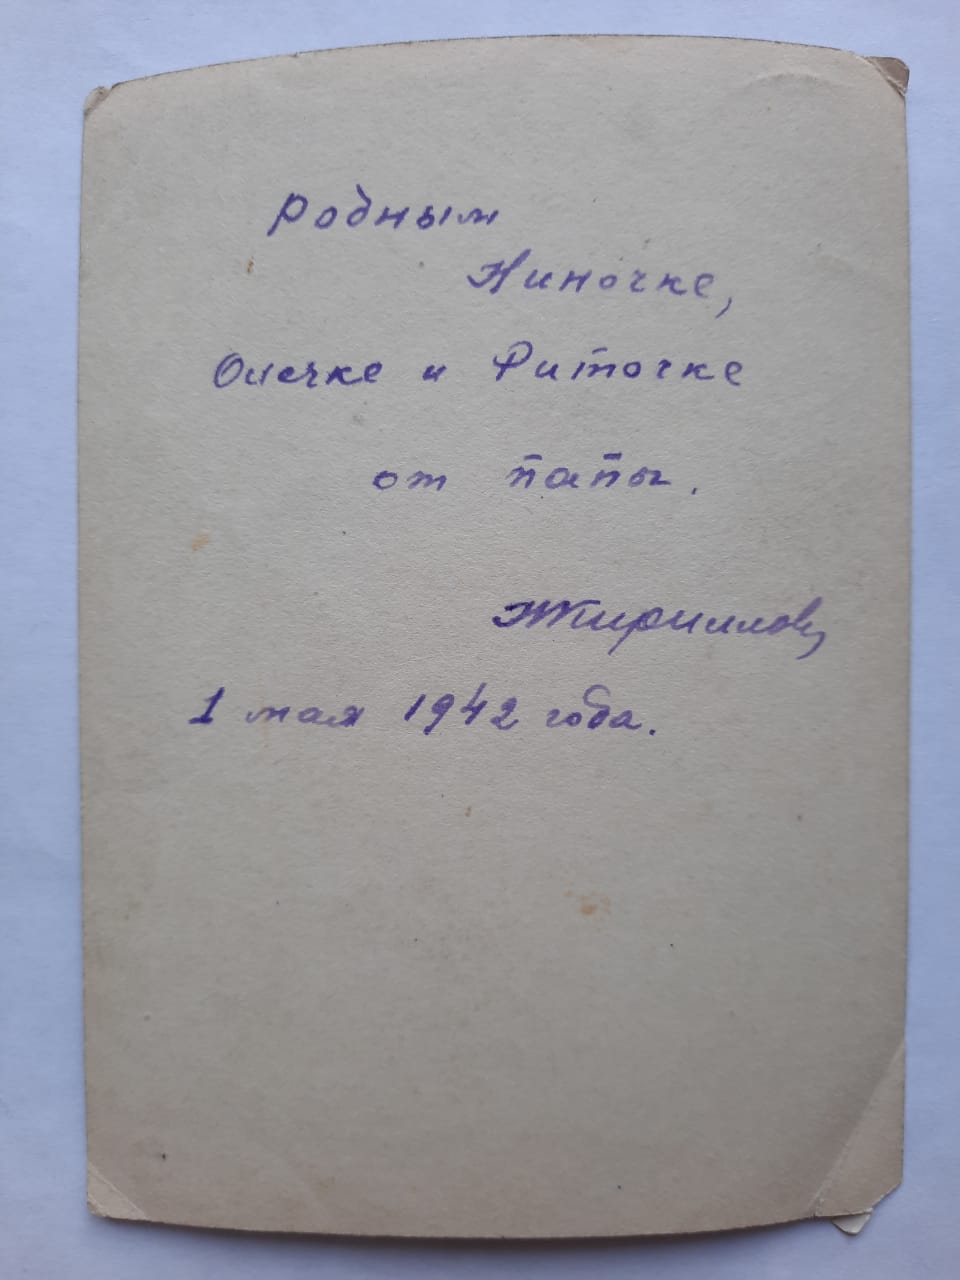 Родным
Ниночке,
Олечке и Риточке
от папы.
1 мая 1942 года.